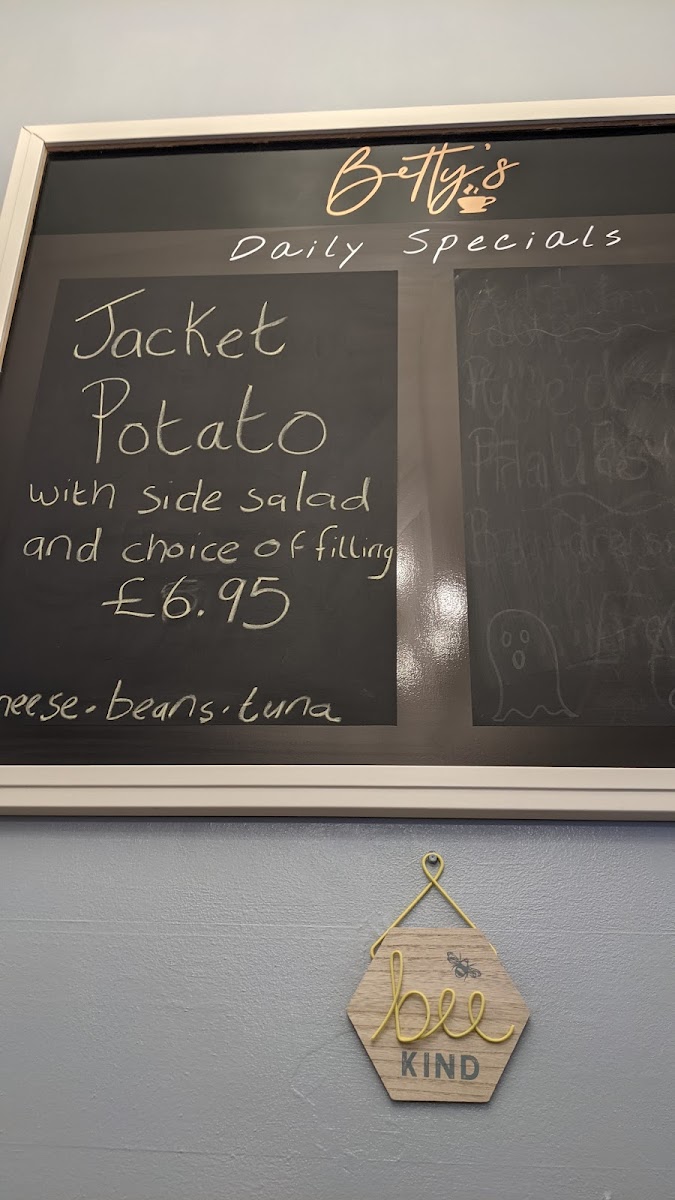 Betty's
Daily Specials
Jacket
Potato
with side salad
and choice of filling
£6.95
heese.beans.tuna
bee
KIND